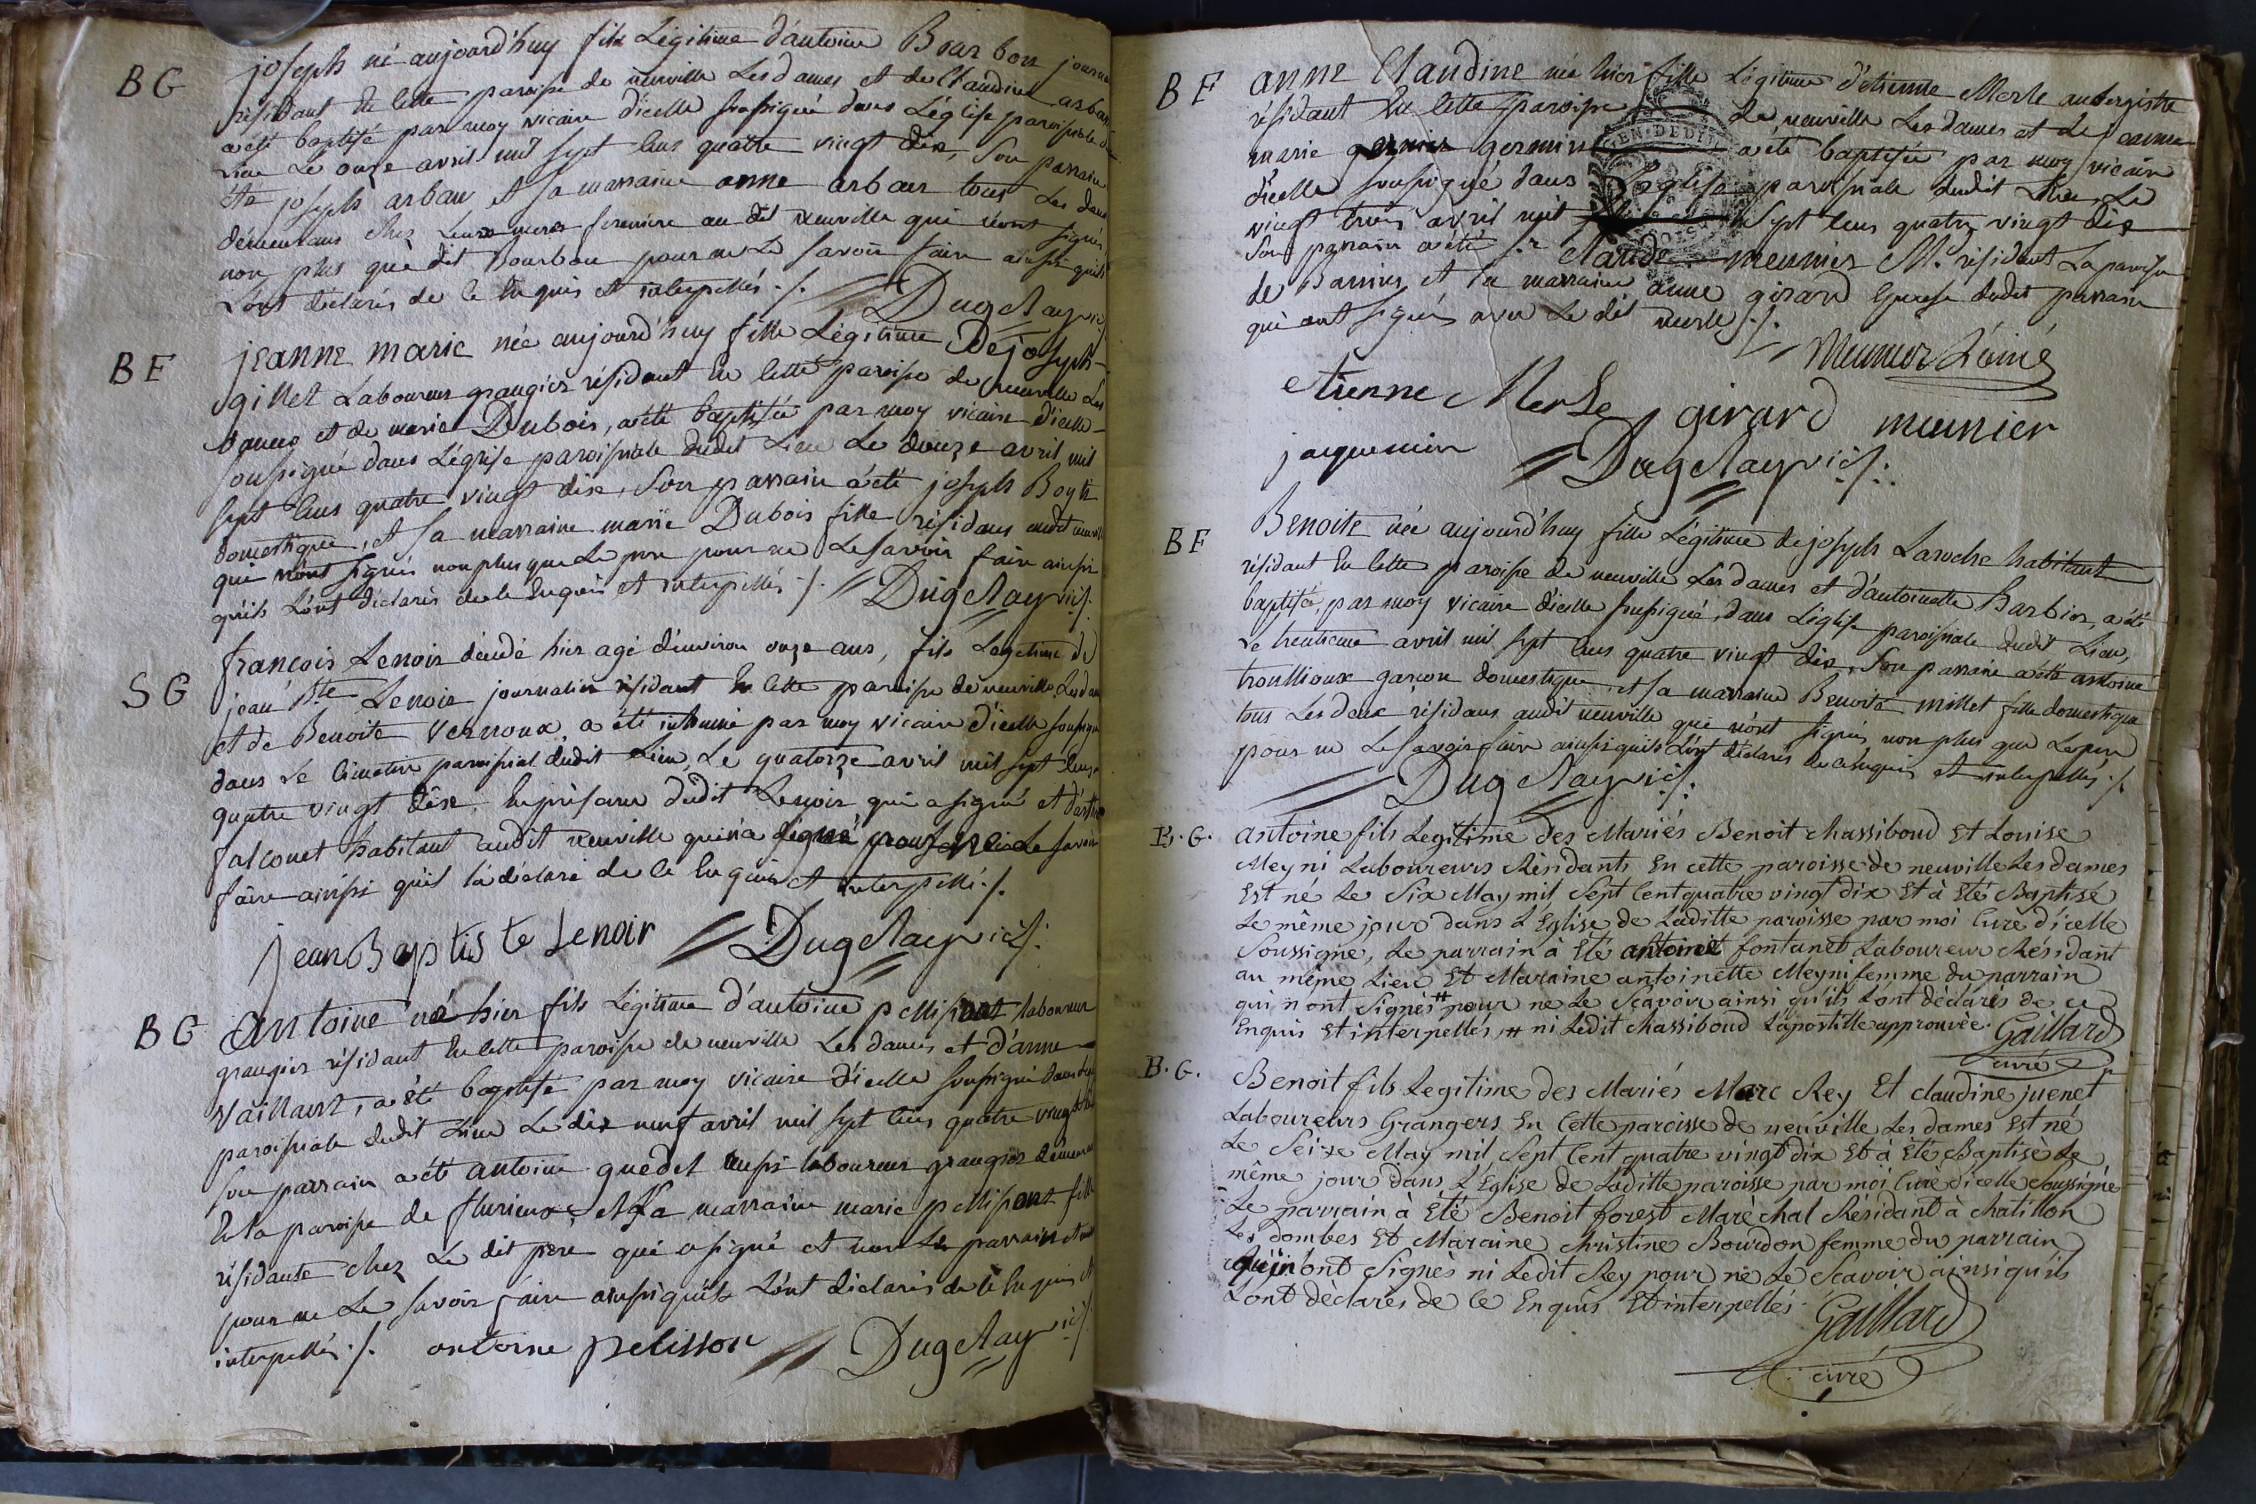 BG
joseph né aujourd'huy fils Légitime d'antoine Bourbon
résidant En cette paroisse de neuville Les dames et de Claudine arban
a été baptisé par moy vicaire d'icelle soussigné dans L'église paroissiale du
Lieu Le onze avril mil sept cens quatre vingt dix, Son parrain
été joseph arban et sa marraine anne arban tous Les deux
démeurans chez Leurs meres fermiere au dit neuville qui n'ont signés
non plus que dit Bourbon pour ne Le savoir faire ainsi qu'ils
L'ont déclarés de ce Enquis et interpellés ./. Dugelay vic/.
BF
jeanne marie née aujourd'huy fille Légitime De joseph
gillet Laboureur grangier résidant En cette paroisse de neuville Les
dames et de marie Dubois, a été baptisée par moy vicaire d'icelle
soussigné dans L'église paroissiale dudit Lieu Le douze avril mil
sept cens quatre vingt dix, Son parrain a été joseph
domestique, et sa marraine marie Dubois fille résidans audit neuville
qui n'ont signés non plus que Le pere pour ne Le savoir faire ainsi
qu'ils L'ont déclarés de ce Enquis et interpellés ./. Dugelay vic/.
SG
françois Lenoir décédé hier agé d'environ onze ans, fils Legitime de
jean Bte Lenoir journalier résidant En cette paroisse de neuville Les dames
et de Benoite Vernoux, a été inhumé par moy vicaire d'icelle soussigné
dans Le cimetiere paroissial dudit Lieu, Le quatorze avril mil sept cens
quatre vingt dix, En présence dudit Lenoir qui a signé et
falconet habitant audit neuville qui n'a signé pour ne Le savoir
faire ainsi qu'il l'a déclaré de ce Enquis et interpellé ./.
jean Baptiste Lenoir Dugelay vic/.
BG
Antoine né hier fils Légitime d'antoine pellissont laboureur
grangier résidant En cette paroisse de neuville Les dames et d'anne
Vaillant, a été baptisé par moy vicaire d'icelle soussigné dans
paroissiale dudit Lieu Le dix neuf avril mil sept cens quatre vingt dix
son parrain a été antoine guedel aussi laboureur grangier demeurant
En la paroisse de flurieux, et sa marraine marie pellissont fille
résidante chez Le dit pere qui a signé et non Le parrain
pour ne Le savoir faire ainsi qu'ils L'ont déclarés de ce Enquis et
interpellés ./. antoine pelisson Dugelay vic/.
BF
anne Claudine née hier fille Légitime d'etienne Merle aubergiste
résidant En cette paroisse de neuville Les dames et de jeanne
marie germin a été baptisée par moy vicaire
d'icelle soussigné dans L'église paroissiale dudit Lieu Le
vingt trois avril mil sept cens quatre vingt dix
Son parrain a été Sr Claude meunier résidant La paroisse
de et sa marraine anne girard Epouse dudit parrain
qui ont signés avec Le dit merle ./.
Meunier L'ainé
etienne Merle girard meunier
jaquemin Dugelay vic/.
BF
Benoite née aujourd'huy fille Légitime de joseph Laroche habitant
résidant En cette paroisse de neuville Les dames et d'antoinette Barbier, a été
baptisée, par moy vicaire d'icelle soussigné, dans L'église paroissiale dudit Lieu,
Le trentieme avril mil sept cens quatre vingt dix, Son parrain a été antoine
troullioux garçon domestique et sa marraine Benoite millet fille domestique
tous Les deux résidans audit neuville qui n'ont signés non plus que Le pere
pour ne Le savoir faire ainsi qu'ils L'ont déclarés de ce Enquis et interpellés ./.
Dugelay vic/.
B. G.
antoine fils Legitime des Mariés Benoit Massiboud Et Louise
Meyni Laboureurs Résidants En cette paroisse de neuville Les dames
Est né Le Six May mil Sept Cent quatre vingt dix Et à Eté Baptisé
Le même jour dans L'Eglise de Laditte paroisse par moi Curé d'icelle
Soussigné, Le parrain à Eté antoine fontanet Laboureur Résidant
au même Lieu Et Maraine antoinette Meyni femme du parrain
qui n'ont Signés # pour ne Le Scavoir ainsi qu'ils L'ont déclarés de ce
Enquis Et interpellés, # ni Ledit Massiboud L'apostille approuvée. Gaillard
curé
B. G.
Benoit fils Legitime des Mariés Marc Rey Et Claudine juenet
Laboureurs Grangers En Cette paroisse de neuville Les dames Est né
Le Seize May mil Sept Cent quatre vingt dix Et à Eté Baptisé Le
même jour dans L'Eglise de Laditte paroisse par moi Curé d'icelle Soussigné
Le parrain à Eté Benoit forest Maréchal Résidant à Chatillon
Les dombes Et Maraine Christine Bourdon femme du parrain
qui n'ont Signés ni Ledit Rey pour ne Le Scavoir ainsi qu'ils
Lont déclarés de Ce Enquis Et interpellés. Gaillard
curé